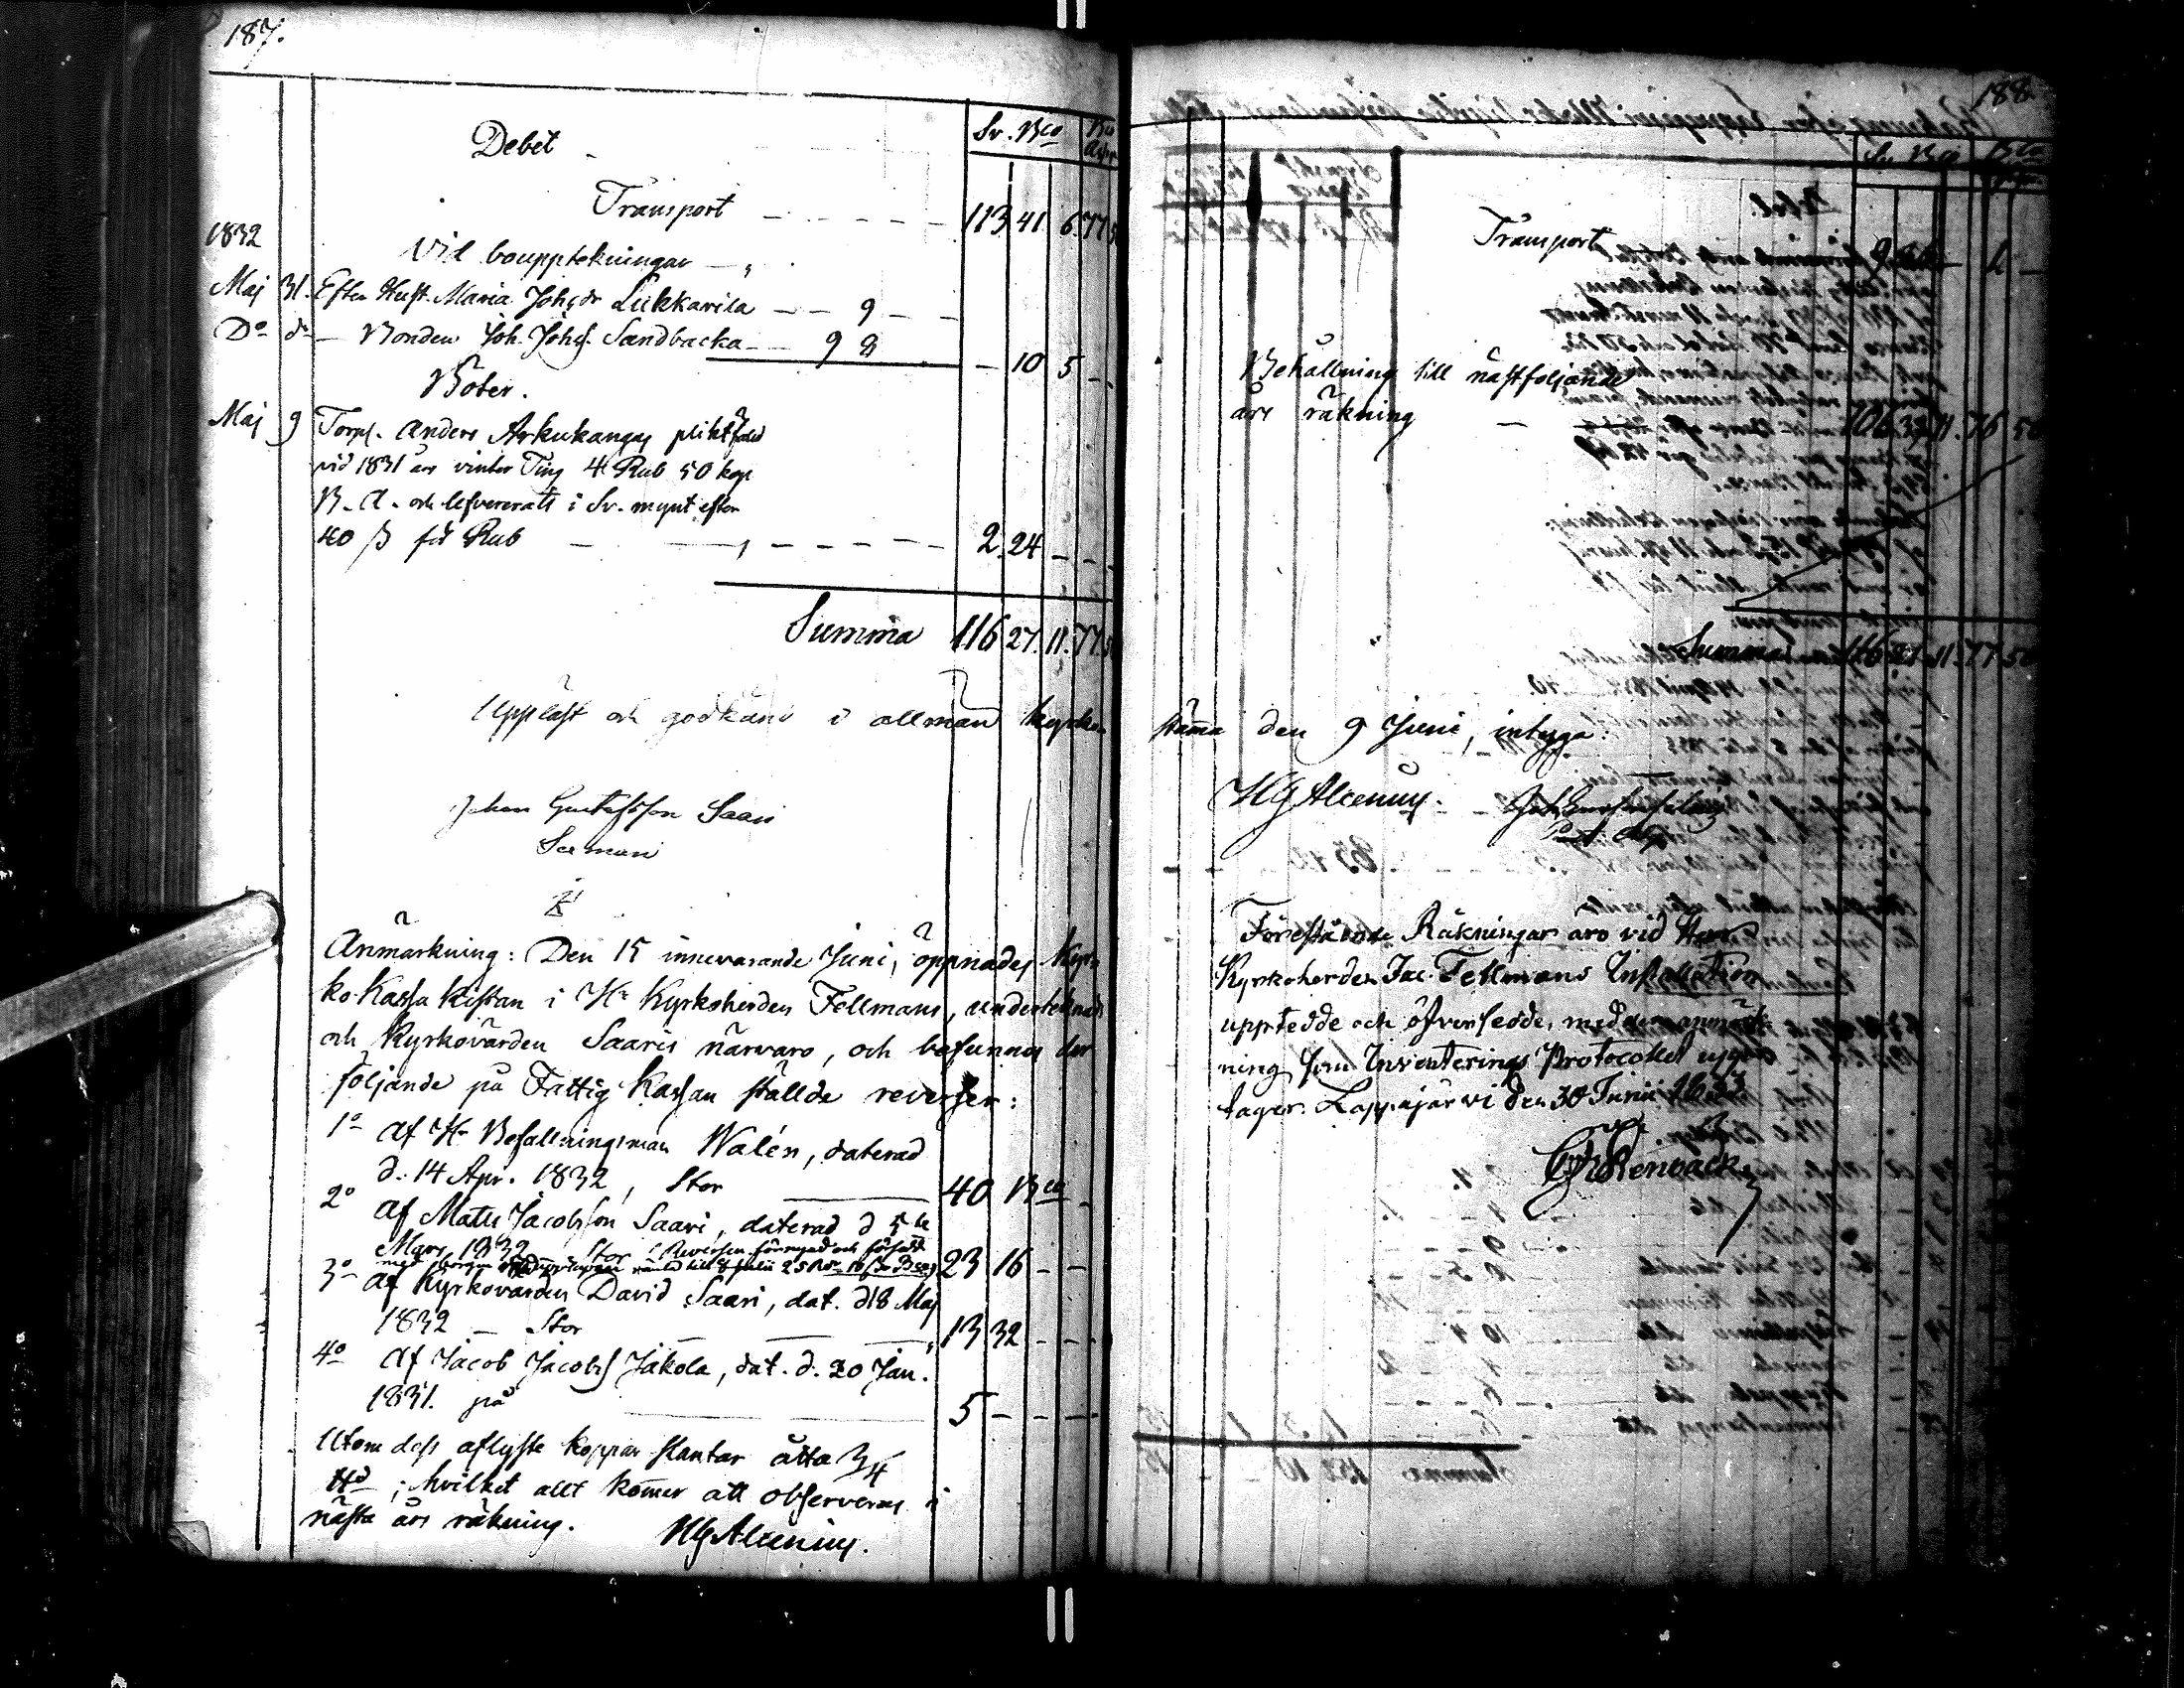 187.
Debet
Sv. Bco
Transport 113 41 6 77
1832
Vid boupptekningar
Maj 31. Efter Hust. Maria Johsdr Lukkarila 9
Do do Bonden Joh. Johs. Sandbacka 9 8 10 5
Böter.
Maj 9 Torp. Anders Arkukangas pliktfäld
vid 1831 års vinter Ting 4 Rub 50 kop
B. A. och lefvererats i Sv. mynt efter
40 ß för Rub 2 24
Summa 116 27 11 77
Uppläst och godkänd i allmän kyrko
Johan Gustafsson Saari
Anmärkning: Den 15 innevarande Juni, öppnades kyr-
ko-Kassa Kistan i Hr Kyrkoherden Fellmans, underteknads
och Kyrkovärden Saaris närvaro, och befunnos der
följande på Fattig Kassan stållde reverser:
1o af Hr Befallningsman Walén, daterad
d. 14 Apr. 1832, Stor 40 Bco
2o af Matts Jacobsson Saari, daterad d 5te
Mars 1832 Stor (Reversen förnyad och försedd 23 16
3o af Kyrkovärden David Saari, dat. d 18 Maj
1832 Stor 13 32
4o af Jacob Jacobss Jäkola, dat. d. 20 Jan.
1831. på 5
Utom dess aflyste koppar slantar åtta 3/4
; hvilket allt kommer att observeras i
nästa års räkning. HG Alcenius.
188.
Transport
Behållning till nästföljande
års räkning 106 39 11 76 50
Summa 116 27 11 77 50
stämma den 9 Juni, intyga
HG Alcenius.
Förestående Räkningar äro vid Herr
Kyrkoherden Jac. Fellmans Installation
uppteedde och öfversedde, med den anmärk-
ning som Inventerings Protocollet upp-
tager. Lappajärvi den 30 Junii 1833